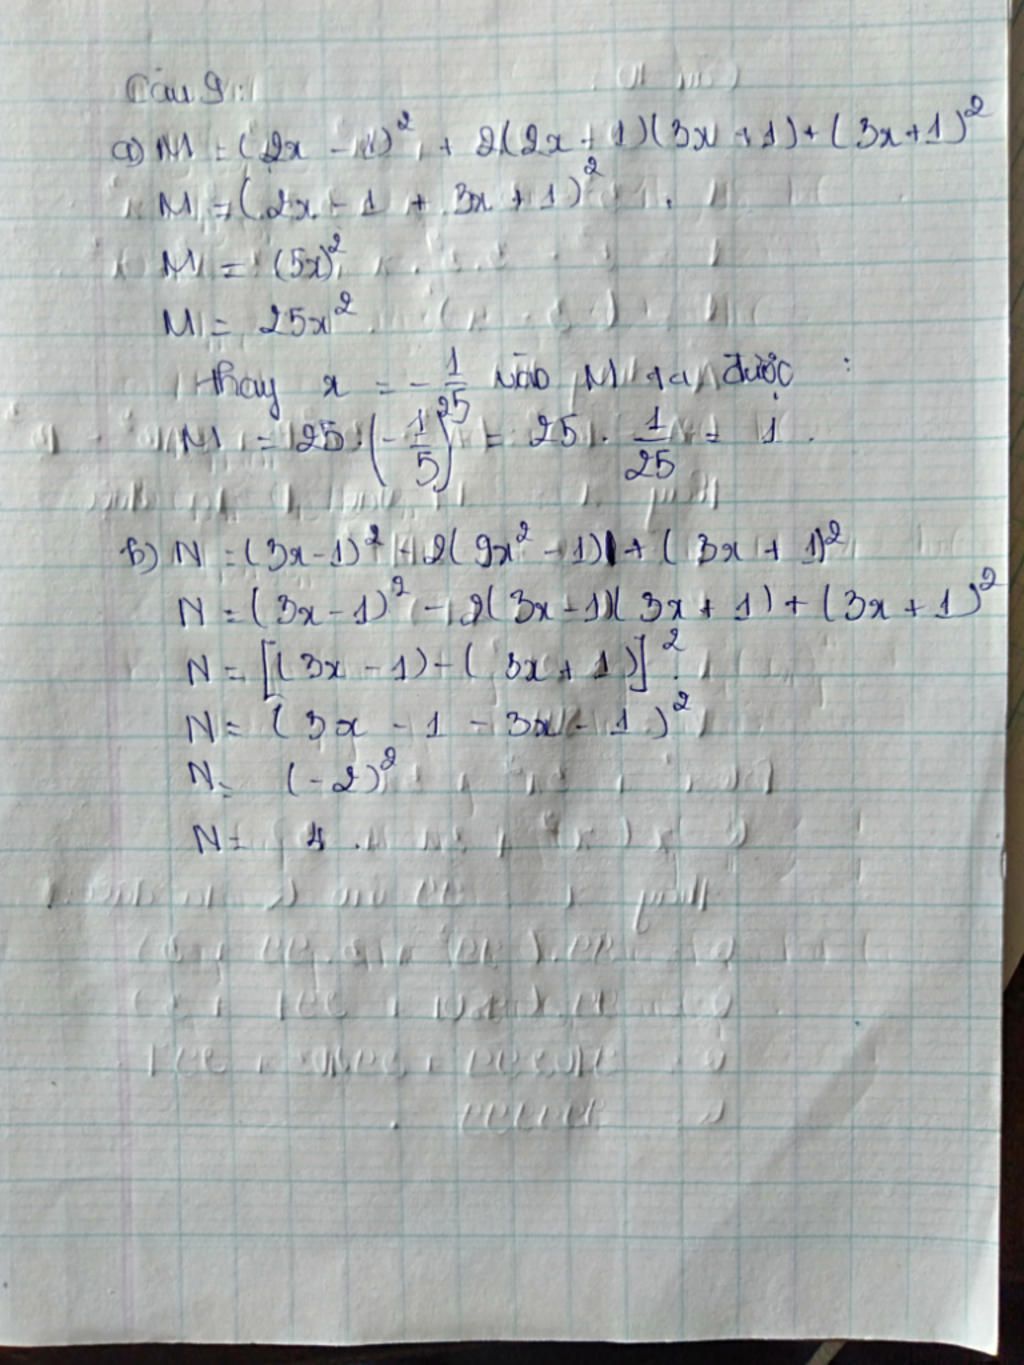 Câu 9:
a) M = (2x - 1)² + 2(2x + 1)(3x + 1) + (3x + 1)²
M = (2x - 1 + 3x + 1)²
M = (5x)²
M = 25x²
thay x = -1/5 vào M ta được :
M = 25 . (-1/5)² = 25 . 1/25 = 1 .
b) N = (3x - 1)² - 2(9x² - 1) + (3x + 1)²
N = (3x - 1)² - 2(3x - 1)(3x + 1) + (3x + 1)²
N = [(3x - 1) - (3x + 1)]²
N = (3x - 1 - 3x - 1)²
N = (-2)²
N = 4 .